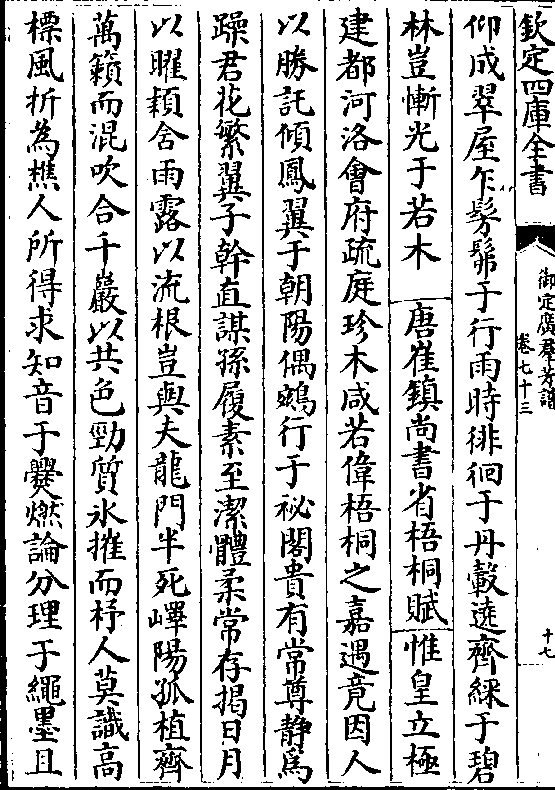 欽定四庫全書
御定廣羣芳譜
卷七十三
十七
仰成翠屋乍髣髴于行雨時徘徊于丹轂遶齊綵于碧
林豈慚光于若木 唐崔鎮尚書省梧桐賦 惟皇立極
建都河洛會府疏庭珍木咸若偉梧桐之嘉遇竟因人
以勝託傾鳳翼于朝陽偶鵷行于祕閣貴有常尊靜為
躁君花繁翼子幹直謀孫履素至潔體柔常存揭日月
以曜穎含雨露以流根豈與夫龍門半死嶧陽孤植齊
萬籟而混吹合千巖以共色勁質氷摧而杍人莫識高
標風折為樵人所得求知音于爨燃論分理于繩墨且